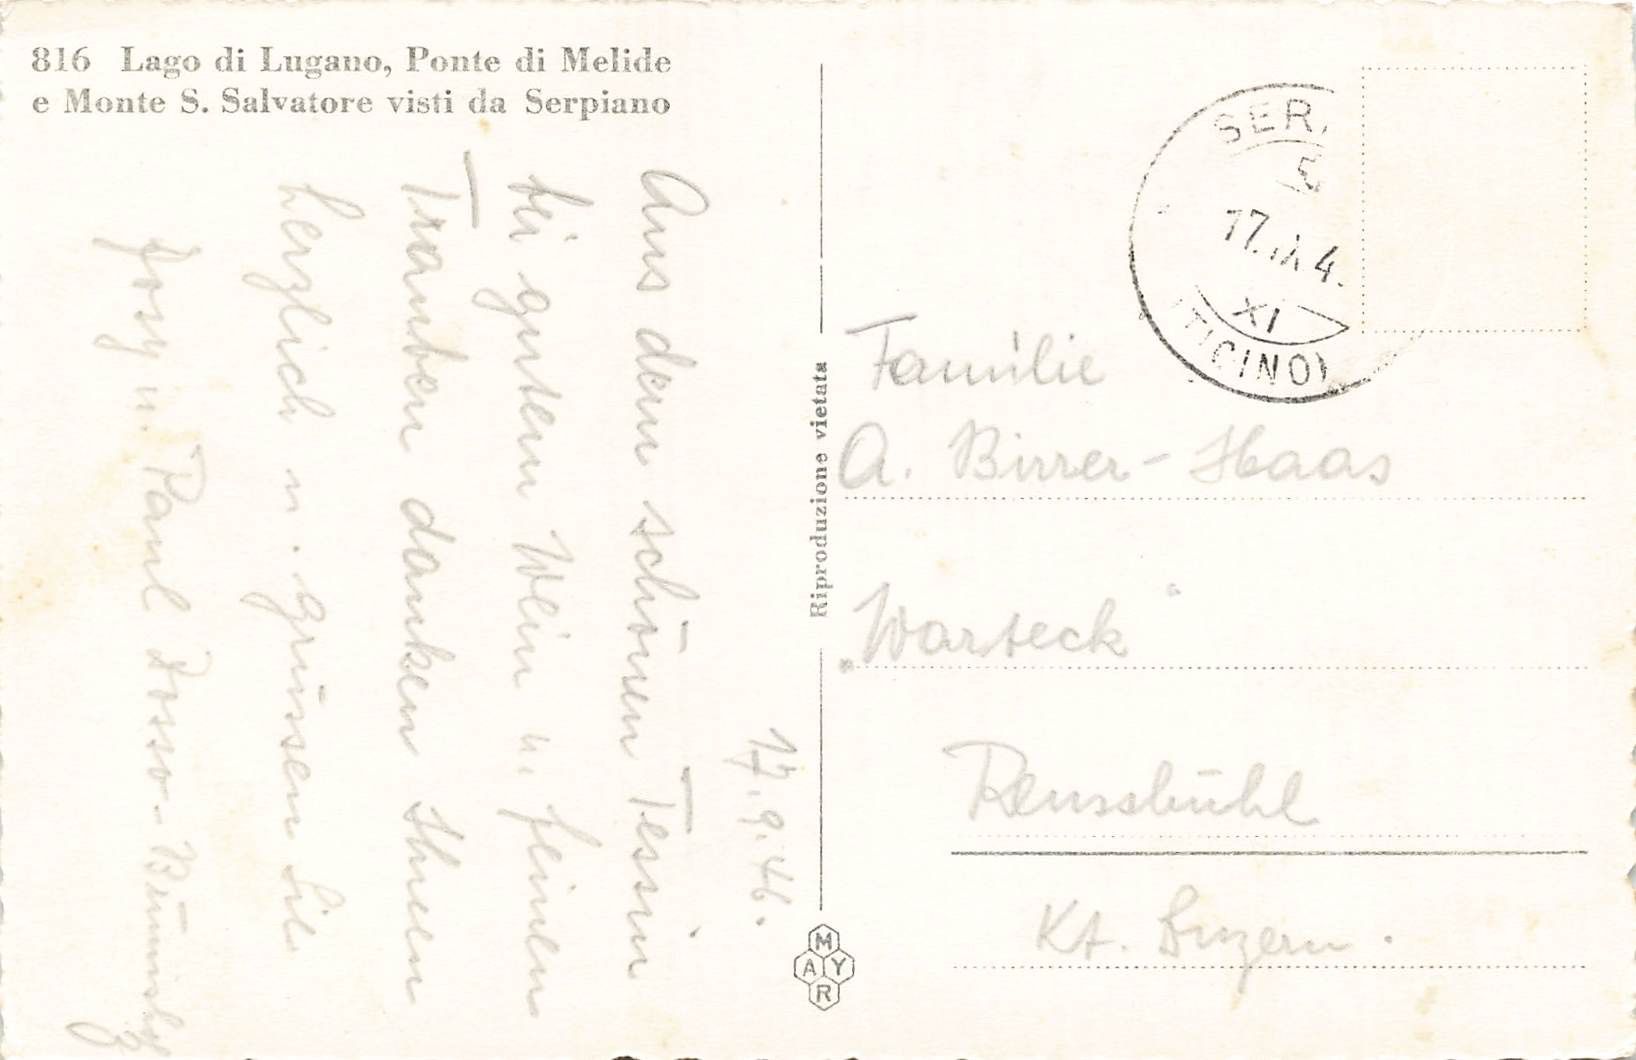 816 Lago di Lugano, Ponte di Melide
e Monte S. Salvatore visti da Serpiano
17.9.46.
Aus dem schönen Tessin
bei gutem Wein u. feinen
Trauben danken Ihnen
herzlich u. grüssen Sie
Josy u. Paul
Riproduzione vietata
MAYR
SER
17. IX 4
XI
(TICINO)
Familie
A. Birrer-Haas
„Warteck"
Reussbühl
Kt. Luzern.